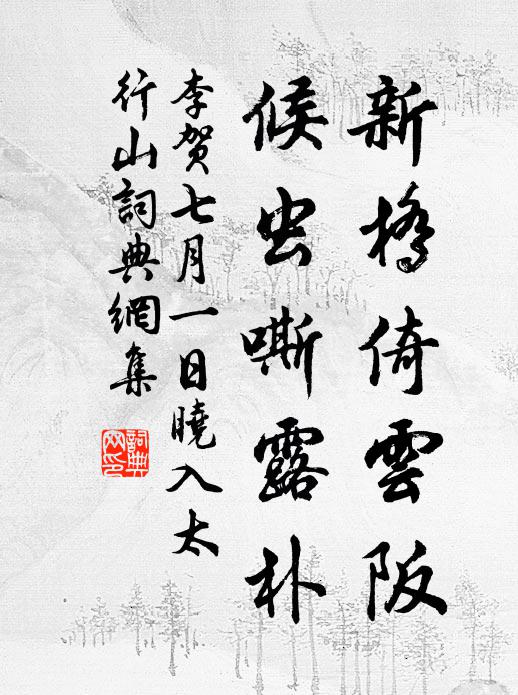 新橋倚雲阪
候虫嘶露朴
李贺七月一日曉入太
行山詞典網集
詞典
网印